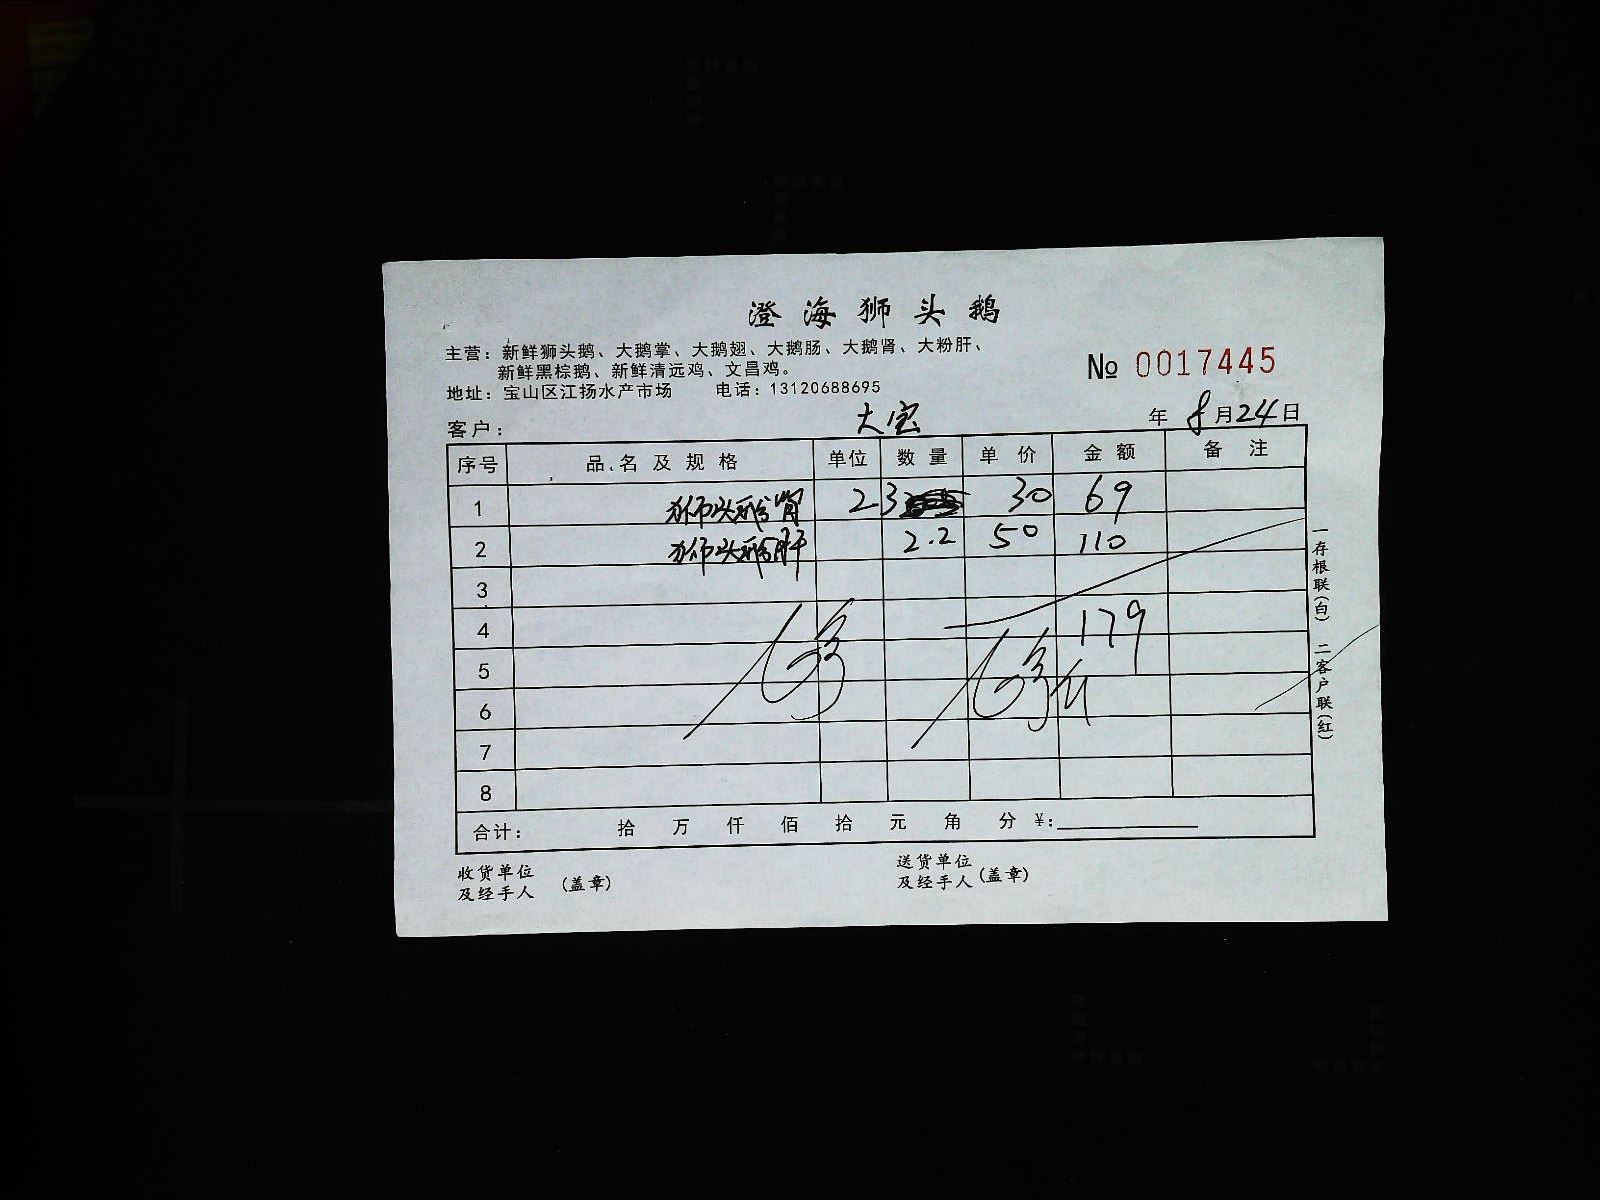 澄海狮头鹅
主营：新鲜狮头鹅、大鹅掌、大鹅翅、大鹅肠、大鹅肾、大粉肝、
新鲜黑棕鹅、新鲜清远鸡、文昌鸡。
№ 0017445
地址：宝山区江扬水产市场 电话：13120688695
客户： 大宝 年 8月24日
序号 品名及规格 单位 数量 单价 金额 备注
1 狮头鹅肾 2.3 30 69
2 狮头鹅肝 2.2 50 110
3
4 179
5
6
7
8
合计： 拾 万 仟 佰 拾 元 角 分 ¥：
收货单位
及经手人 （盖章）
送货单位
及经手人（盖章）
一存根联（白） 二客户联（红）